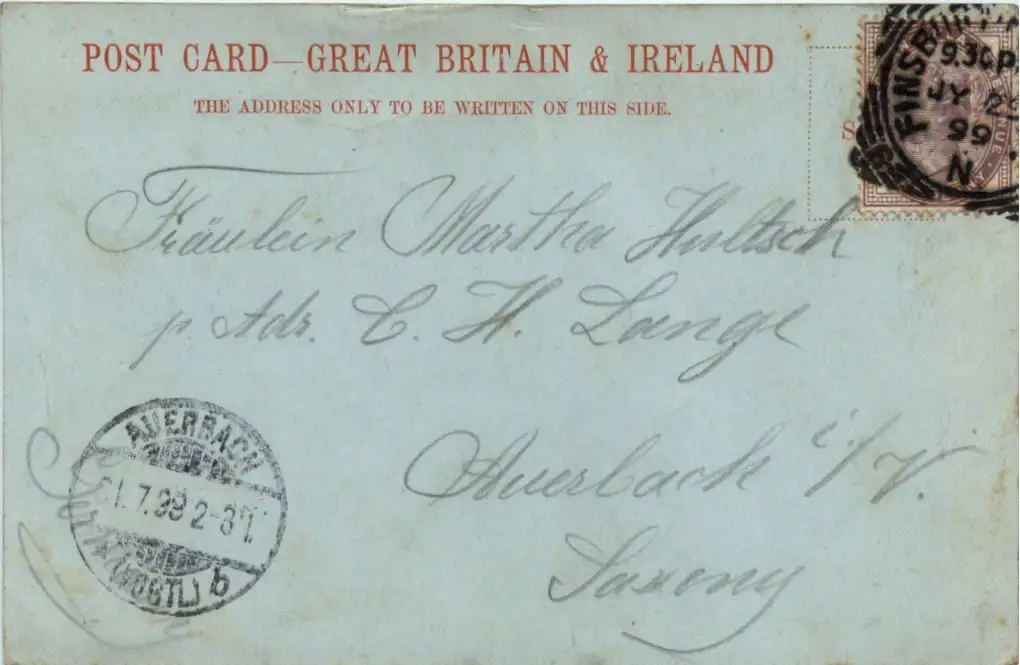 POST CARD—GREAT BRITAIN & IRELAND
THE ADDRESS ONLY TO BE WRITTEN ON THIS SIDE.
FINSBURY
9.30P
JY 29
99
N
Fräulein Martha Hultsch
p. Adr. C. H. Lange
Auerbach i./V.
Saxony
AUERBACH
1.7.99 2-3 N.
(VOGTL) b